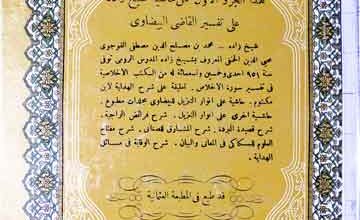 هذا الجزء الأول من حاشية شيخ زاده
على تفسير القاضى البيضاوى
شيخ زاده ــ محمد بن مصلح الدين مصطفى القوجوى
محيى الدين الحنفى المعروف بشيخ زاده المدرس الرومى توفى
سنة ٩٥١ احدى وخمسين وتسعمائة له من الكتب الاخلاصية
فى تفسير سورة الاخلاص . تعليقة على شرح الهداية لابن
مكتوم . حاشية على انوار التنزيل للبيضاوى مجلدات مطبوع .
حاشية اخرى على أنوار التنزيل . شرح فرائض السراجية .
شرح قصيدة البردة . شرح المشارق للصغانى . شرح مفتاح
العلوم للسكاكى فى المعانى والبيان . شرح الوقاية فى مسائل
الهداية .
قد طبع فى المطبعة العثمانية